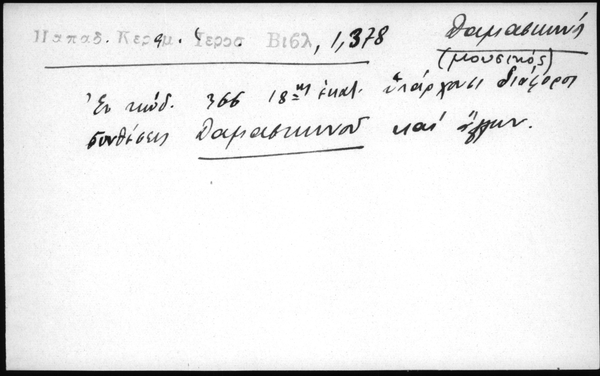 Παπαδ. Κεραμ. Ιεροσ. Βιβλ, 1,378
Δαμασκηνός
(μουσικός)
Ἐν κώδ. 366 18ης ἑκατ. ὑπάρχουσι διάφοροι
συνθέσεις Δαμασκηνοῦ καί ἄλλων.